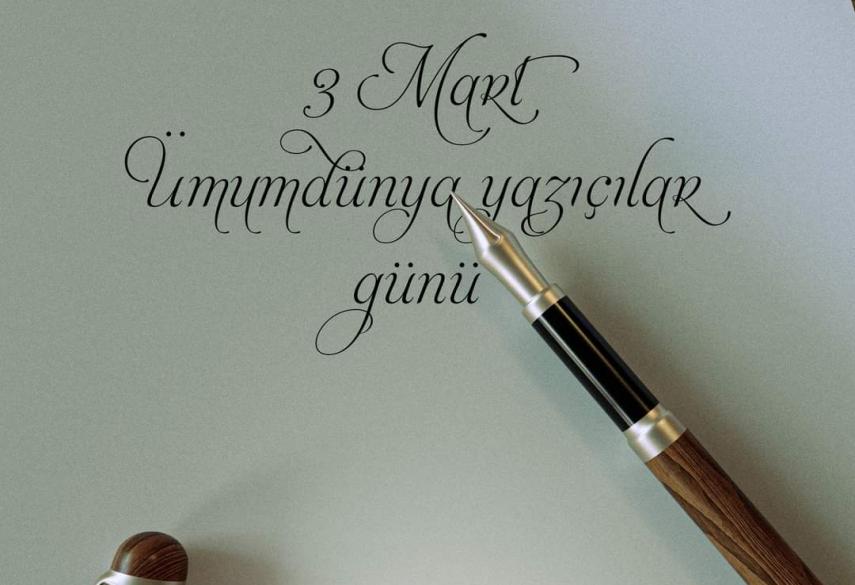 3 Mart
Ümumdünya yazıçılar
günü